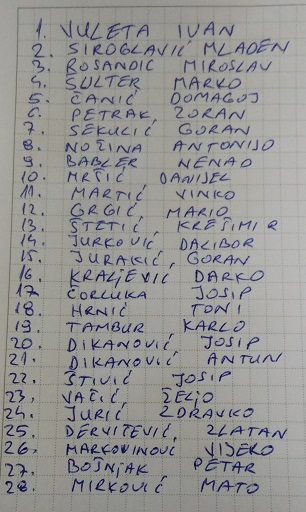 1. VULETA IVAN
2. SIROGLAVIĆ MLADEN
3. BOSANDIC MIROSLAV
4. SULTER MARKO
5. ČANIĆ DOMAGOJ
6. PETRAK, ZORAN
7. SEKULIĆ GORAN
8. NOŽINA ANTONIJO
9. BABLER NENAD
10. MRŠIĆ DANIJEL
11. MARTIĆ VINKO
12. GRGIĆ, MARIO
13. ŠTETIĆ, KREŠIMIR
14. JURKOVIĆ, DALIBOR
15. JURAKIĆ, GORAN
16. KRALJEVIĆ DARKO
17. ČORLUKA JOSIP
18. HRNIĆ TONI
19. TAMBUR KARLO
20. DIKANOVIĆ JOSIP
21. DIKANOVIĆ ANTUN
22. ŠTIVIĆ JOSIP
23. VAČIĆ ŽELJO
24. JURIĆ ZDRAVKO
25. DERVIŠEVIĆ, ZLATAN
26. MARKOVINOVIĆ VIJEKO
27. BOŠNJAK PETAR
28. MIRKOVIĆ MATO